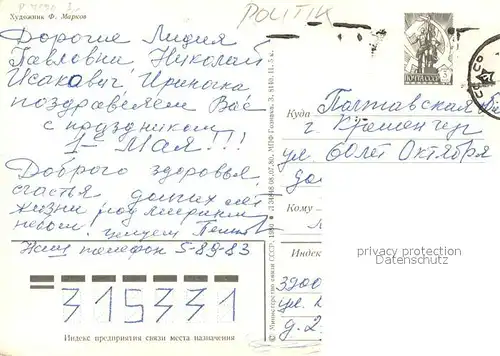 Художник Ф. Марков
POLITIK
Дорогие Лидия
Павловна Николай
Исакович, Ириночка
поздравляем Вас
с праздником
1е Мая!!!
Доброго здоровья,
счастья долгих лет
жизни под мирным
небом. Целуем
телефон 5-89-83
315331
Индекс предприятия связи места назначения
© Министерство связи СССР, 1980
ПОЧТА СССР
Куда Полтавская
г. Кременчуг
ул. 60 лет Октября
Кому
Индекс
ул.
privacy protection
Datenschutz